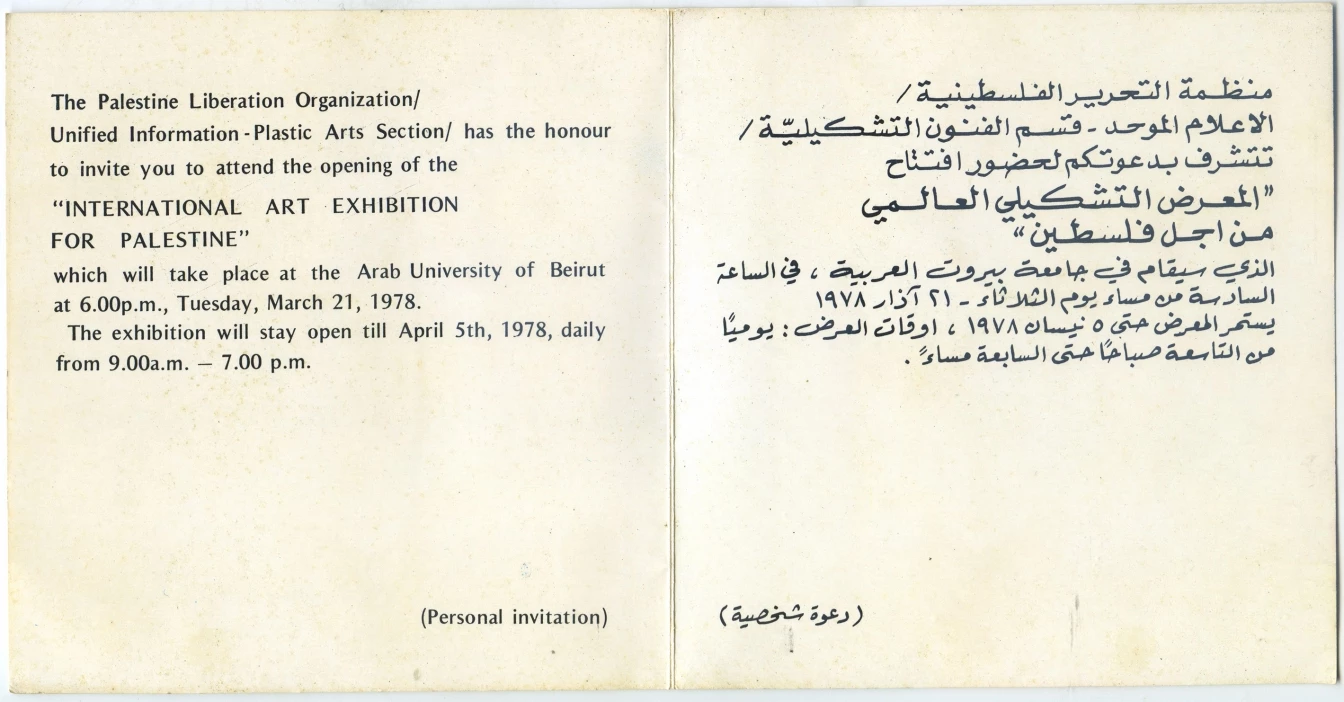 The Palestine Liberation Organization/
Unified Information - Plastic Arts Section/ has the honour
to invite you to attend the opening of the
“INTERNATIONAL ART EXHIBITION
FOR PALESTINE”
which will take place at the Arab University of Beirut
at 6.00p.m., Tuesday, March 21, 1978.
The exhibition will stay open till April 5th, 1978, daily
from 9.00a.m. — 7.00 p.m.
(Personal invitation)
منظمة التحرير الفلسطينية /
الاعلام الموحد - قسم الفنون التشكيليّة /
تتشرف بدعوتكم لحضور افتتاح
”المعرض التشكيلي العالمي
من اجل فلسطين“
الذي سيقام في جامعة بيروت العربية ، في الساعة
السادسة من مساء يوم الثلاثاء - ٢١ آذار ١٩٧٨
يستمر المعرض حتى ٥ نيسان ١٩٧٨ ، اوقات العرض : يوميًا
من التاسعة صباحًا حتى السابعة مساءً .
(دعوة شخصية)